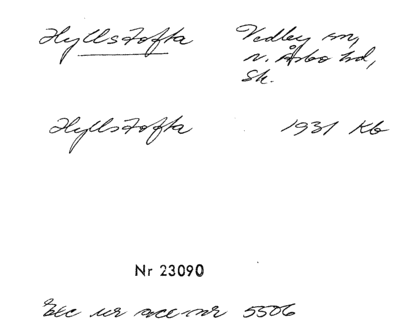 Hyllstofta Vedby sn,
N. Åsbo hd,
Sk.
Hyllstofta 1931 Kb
Nr 23090
Exc ur acc nr 5506